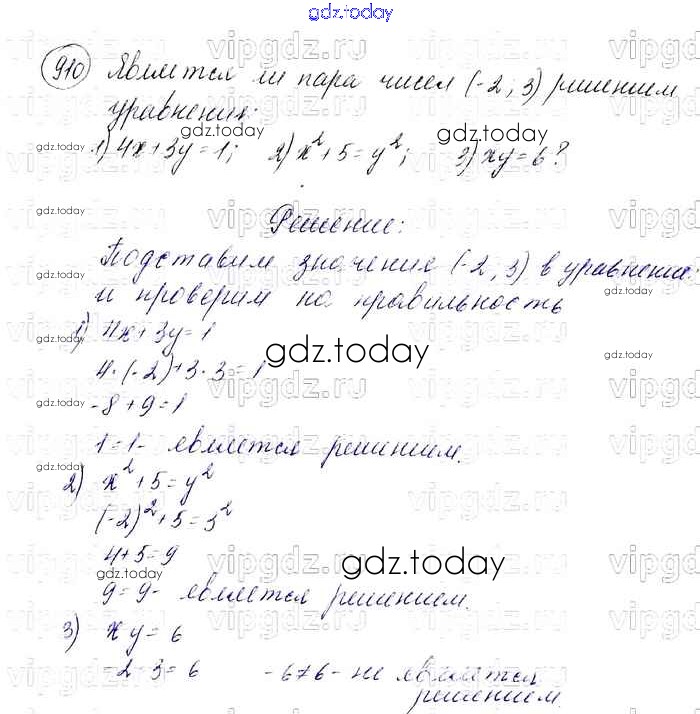 gdz.today
910 Является ли пара чисел (-2; 3) решением
уравнения:
1) 4x+3y=1; 2) x²+5=y²; 3) xy=6?
Решение:
Подставим значение (-2; 3) в уравнение
и проверим на правильность
1) 4x+3y=1
4·(-2)+3·3=1
-8+9=1
1=1- является решением.
2) x²+5=y²
(-2)²+5=3²
4+5=9
9=9- является решением.
3) xy=6
-2·3=6 -6≠6- не является
решением.